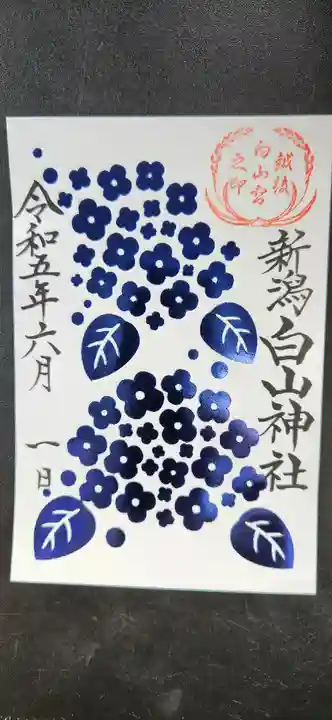 越後
白山宮
之印
新潟白山神社
令和五年六月 一日